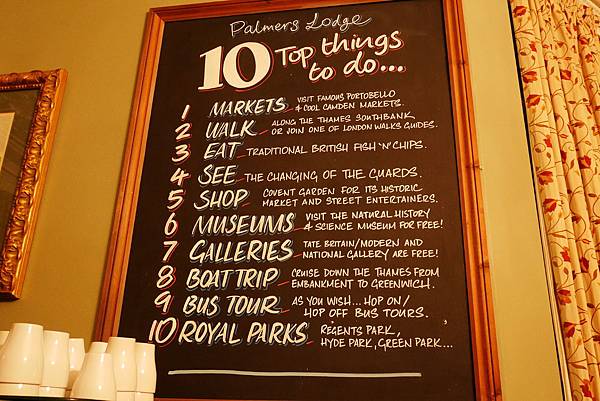 Palmers Lodge
10 Top things
to do...
1 MARKETS VISIT FAMOUS PORTOBELLO
& COOL CAMDEN MARKETS.
2 WALK ALONG THE THAMES SOUTHBANK
OR JOIN ONE OF LONDON WALKS GUIDES.
3 EAT TRADITIONAL BRITISH FISH 'N' CHIPS.
4 SEE THE CHANGING OF THE GUARDS.
5 SHOP COVENT GARDEN FOR ITS HISTORIC
MARKET AND STREET ENTERTAINERS.
6 MUSEUMS VISIT THE NATURAL HISTORY
& SCIENCE MUSEUM FOR FREE!
7 GALLERIES TATE BRITAIN/MODERN AND
NATIONAL GALLERY ARE FREE!
8 BOAT TRIP CRUISE DOWN THE THAMES FROM
EMBANKMENT TO GREENWICH.
9 BUS TOUR AS YOU WISH... HOP ON/
HOP OFF BUS TOURS.
10 ROYAL PARKS REGENTS PARK,
HYDE PARK, GREEN PARK...